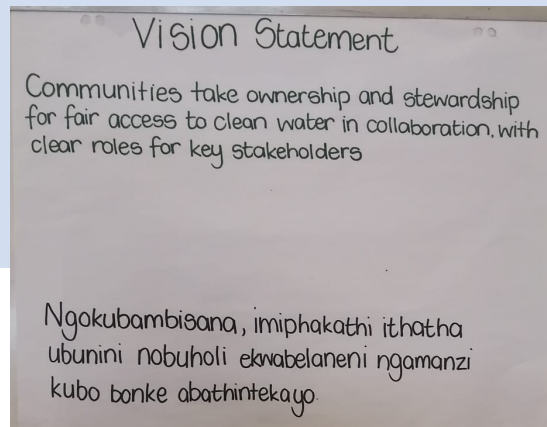 Vision Statement
Communities take ownership and stewardship
for fair access to clean water in collaboration, with
clear roles for key stakeholders
Ngokubambisana, imiphakathi ithatha
ubunini nobuholi ekwabelaneni ngamanzi
kubo bonke abathintekayo.